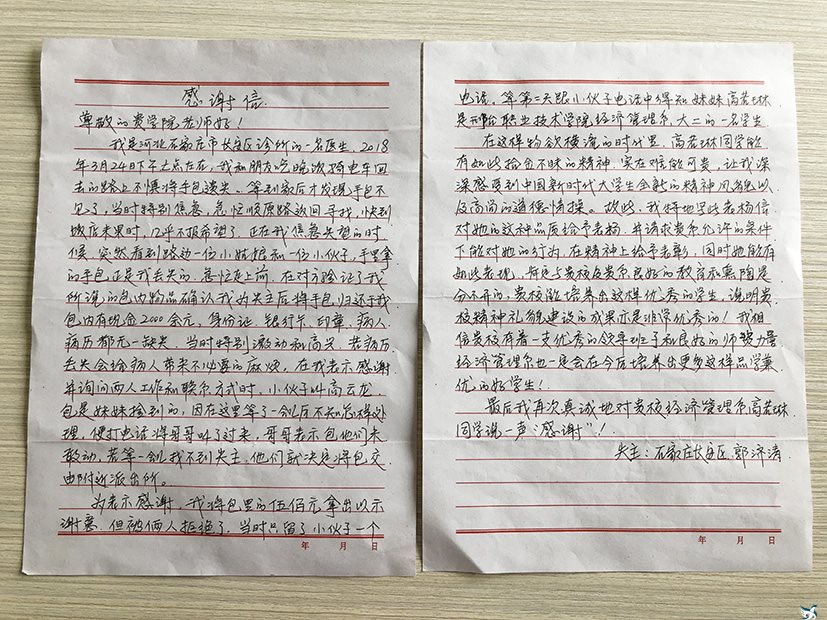 感谢信
尊敬的贵学院老师好！
我是河北石家庄市长安区诊所的一名医生，2018
年3月24日下午七点左右，我和朋友吃晚饭骑电车回
去的路上不慎将手包遗失，等到家后才发现手包不
见了，当时特别焦急，急忙顺原路返回寻找，快到
饭店未果时，几乎不报希望了，正在我焦急失望的时
候，突然看到路边一伍小姑娘和一伍小伙子，手里拿
的手包正是我丢失的，急忙走上前，在对方验证了我
所说的包内物品确认我为失主后将手包归还于我
包内有现金2000余元，身份证、银行卡、印章、病人
病历都无一缺失，当时特别激动和高兴，若病历
丢失会给病人带来不必要的麻烦，在我表示感谢
并询问两人工作和联系方式时，小伙子叫高云龙，
包是妹妹捡到的，因在这里等了一会儿后不知怎样处
理，便打电话将哥哥叫了过来，哥哥表示包他们未
敢动，若等一会儿找不到失主，他们就决定将包交
由附近派出所。
为表示感谢，我将包里的伍佰元拿出以示
谢意，但被俩人拒绝了，当时只留了小伙子一个
年 月 日
电话，等第二天跟小伙子电话中得知妹妹高若琳
是邢台职业技术学院经济管理系大二的一名学生
在这样物欲横流的时代里，高若琳同学能
有如此拾金不昧的精神，实在难能可贵，让我深
深感受到中国新时代大学生全新的精神风貌以
及高尚的道德情操。故此，我特地写此表扬信
对她的这种品质给予表扬，并请求贵系允许的条件
下能对她的行为，在精神上给予表彰，同时她能有
如此表现，肯定与贵校及贵系良好的教育和熏陶是
分不开的，贵校能培养出这样优秀的学生，说明贵
校精神礼貌建设的成果亦是非常优秀的！我相
信贵校有着一支优秀的领导班子和良好的师资力量
经济管理系也一定会在今后培养出更多这样品学兼
优的好学生！
最后我再次真诚地对贵校经济管理系高若琳
同学说一声"感谢"！
失主：石家庄长安区 郭济涛
年 月 日